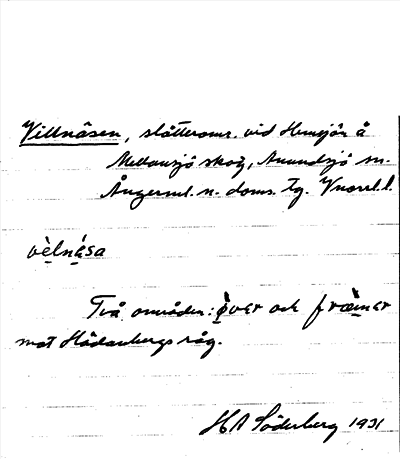 Villnäsen, slåtteroms. vid Hemsjön å
Mellansjö skog, Anundsjö sn.
Ångerml. n. doms. tg. Vnorrl.l.
vèlnása
Två områden: över och främer
mot Hädanbergs råg.
HA Söderberg 1931